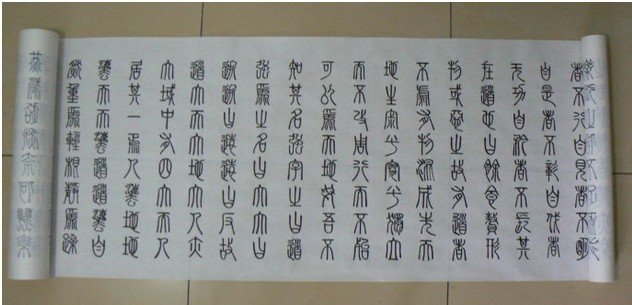 者不行自見者不明
自是者不彰自伐者
无功自矜者不長其
在道也曰餘食贅形
物或惡之故有道者
不處有物混成先天
地生寂兮寥兮獨立
而不改周行而不殆
可以為天地母吾不
知其名強字之曰道
強為之名曰大大曰
逝逝曰遠遠曰反故
道大天大地大人亦
大域中有四大而人
居其一焉人法地地
法天天法道道法自
然重為輕根靜為躁